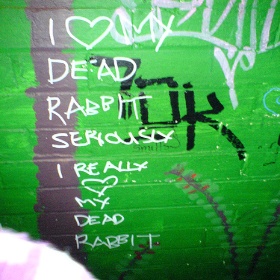 I ♡ MY
DEAD
RABBIT
SERIOUSLY
I REALLY
♡
MY
DEAD
RABBIT